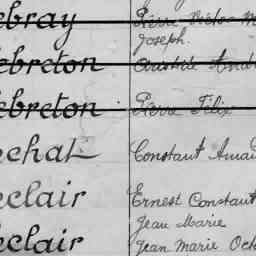 ebray Pierre Victor M
Joseph.
ebreton Aristide And
ebreton Pierre Félix
echat Constant Amau
eclair Ernest Constant
Jean Marie
eclair Jean Marie Oct